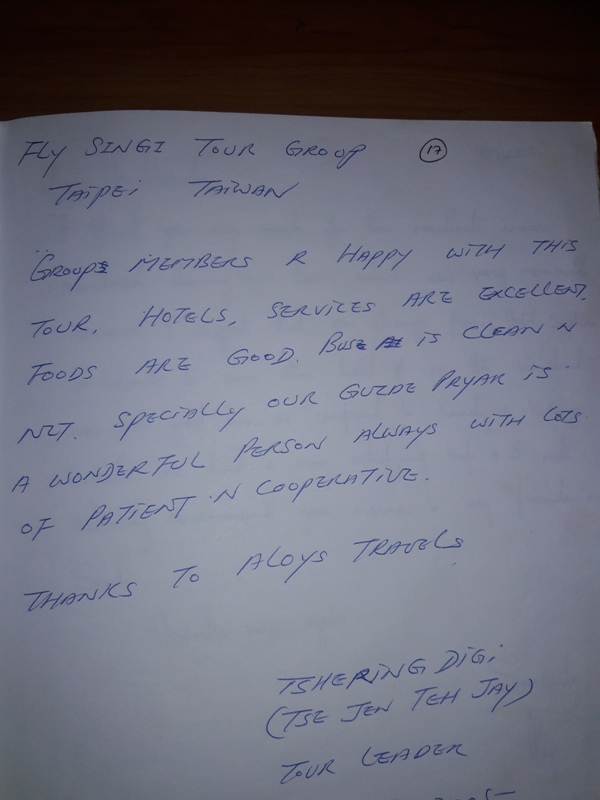 FLY SINGI TOUR GROUP 17
TAIPEI TAIWAN
GROUPS MEMBERS R HAPPY WITH THIS
TOUR. HOTELS, SERVICES ARE EXCELLENT.
FOODS ARE GOOD. BUSE IS CLEAN N
NIT. SPECIALLY OUR GUIDE PRYAR IS
A WONDERFUL PERSON ALWAYS WITH LOTS
OF PATIENT N COOPERATIVE.
THANKS TO ALOYS TRAVELS
TSHERING DIGI
(TSE JEN TEH JAY)
TOUR LEADER